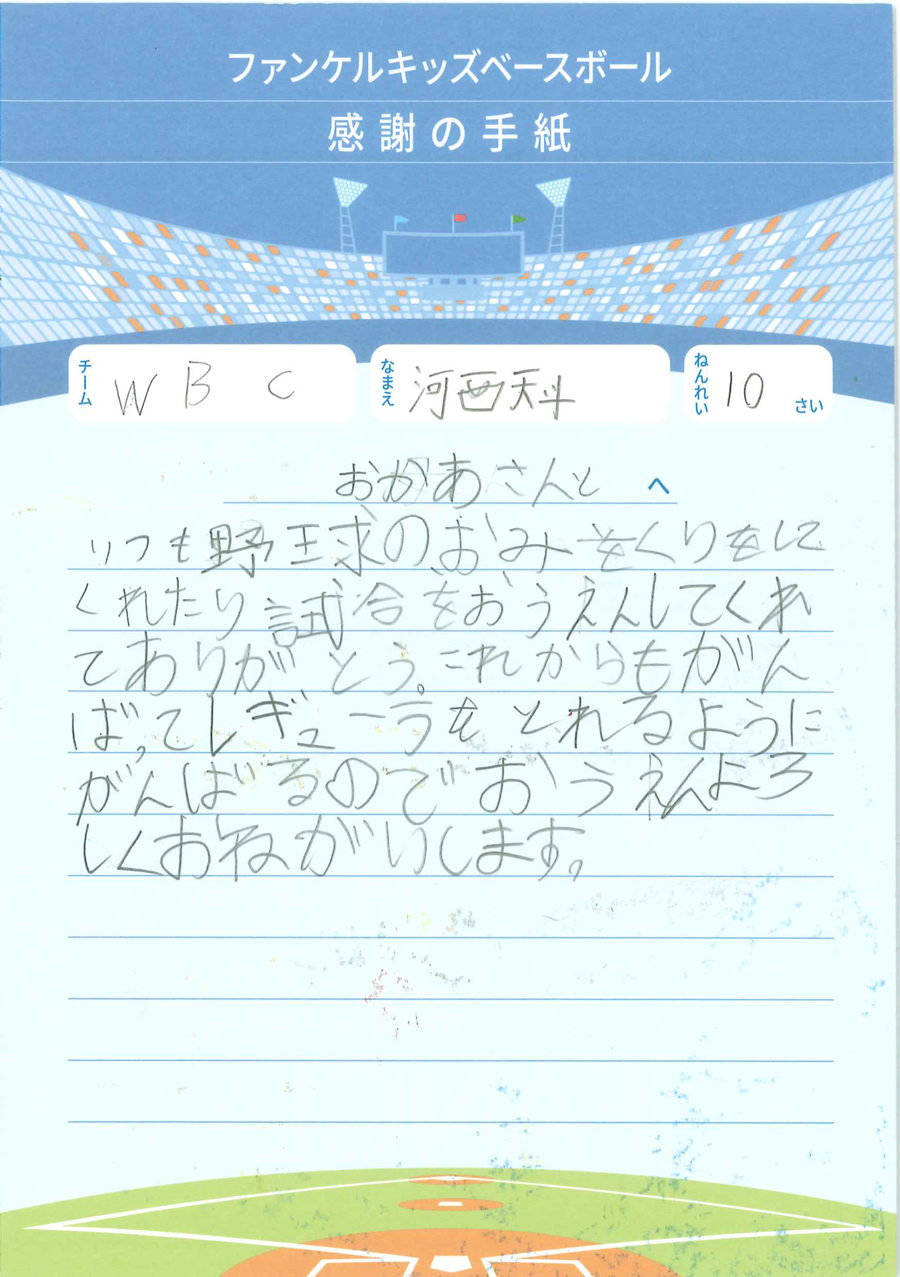 ファンケルキッズベースボール
感謝の手紙
チーム WBC なまえ 河西天斗 ねんれい 10 さい
おかあさんと へ
いつも野球のおみおくりをして
くれたり試合をおうえんしてくれ
てありがとう。これからもがん
ばってレギューラをとれるように
がんばるのでおうえんよろ
しくおねがいします。